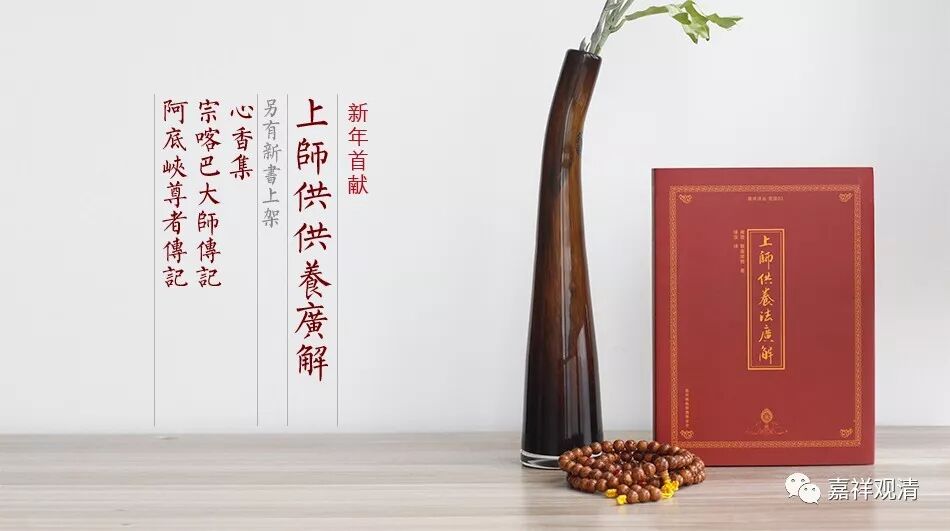 新年首献
上師供供養廣解
另有新書上架
心香集
宗喀巴大師傳記
阿底峽尊者傳記
上師供養法廣解
嘉祥观清